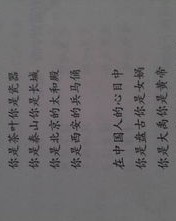 你是茶叶你是瓷器
你是泰山你是长城
你是北京的太和殿
你是西安的兵马俑
在中国人的心目中
你是盘古你是女娲
你是大禹你是黄帝